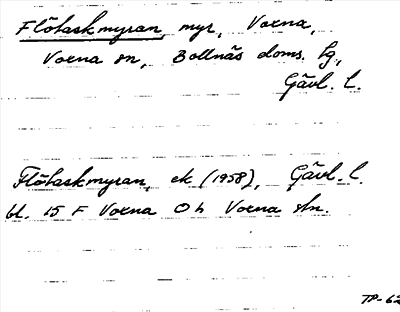 Flötaskmyran, myr, Voxna,
Voxna sn, Bollnäs doms. lg.,
Gävl. l.
Flötaskmyran, ek (1958), Gävl. l.
bl. 15 F Voxna Ö h Voxna stn.
TP-62